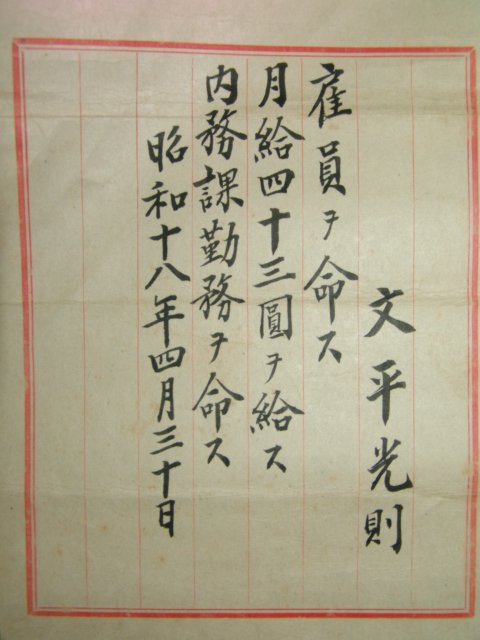 文平光則
雇員ヲ命ス
月給四十三圓ヲ給ス
内務課勤務ヲ命ス
昭和十八年四月三十日